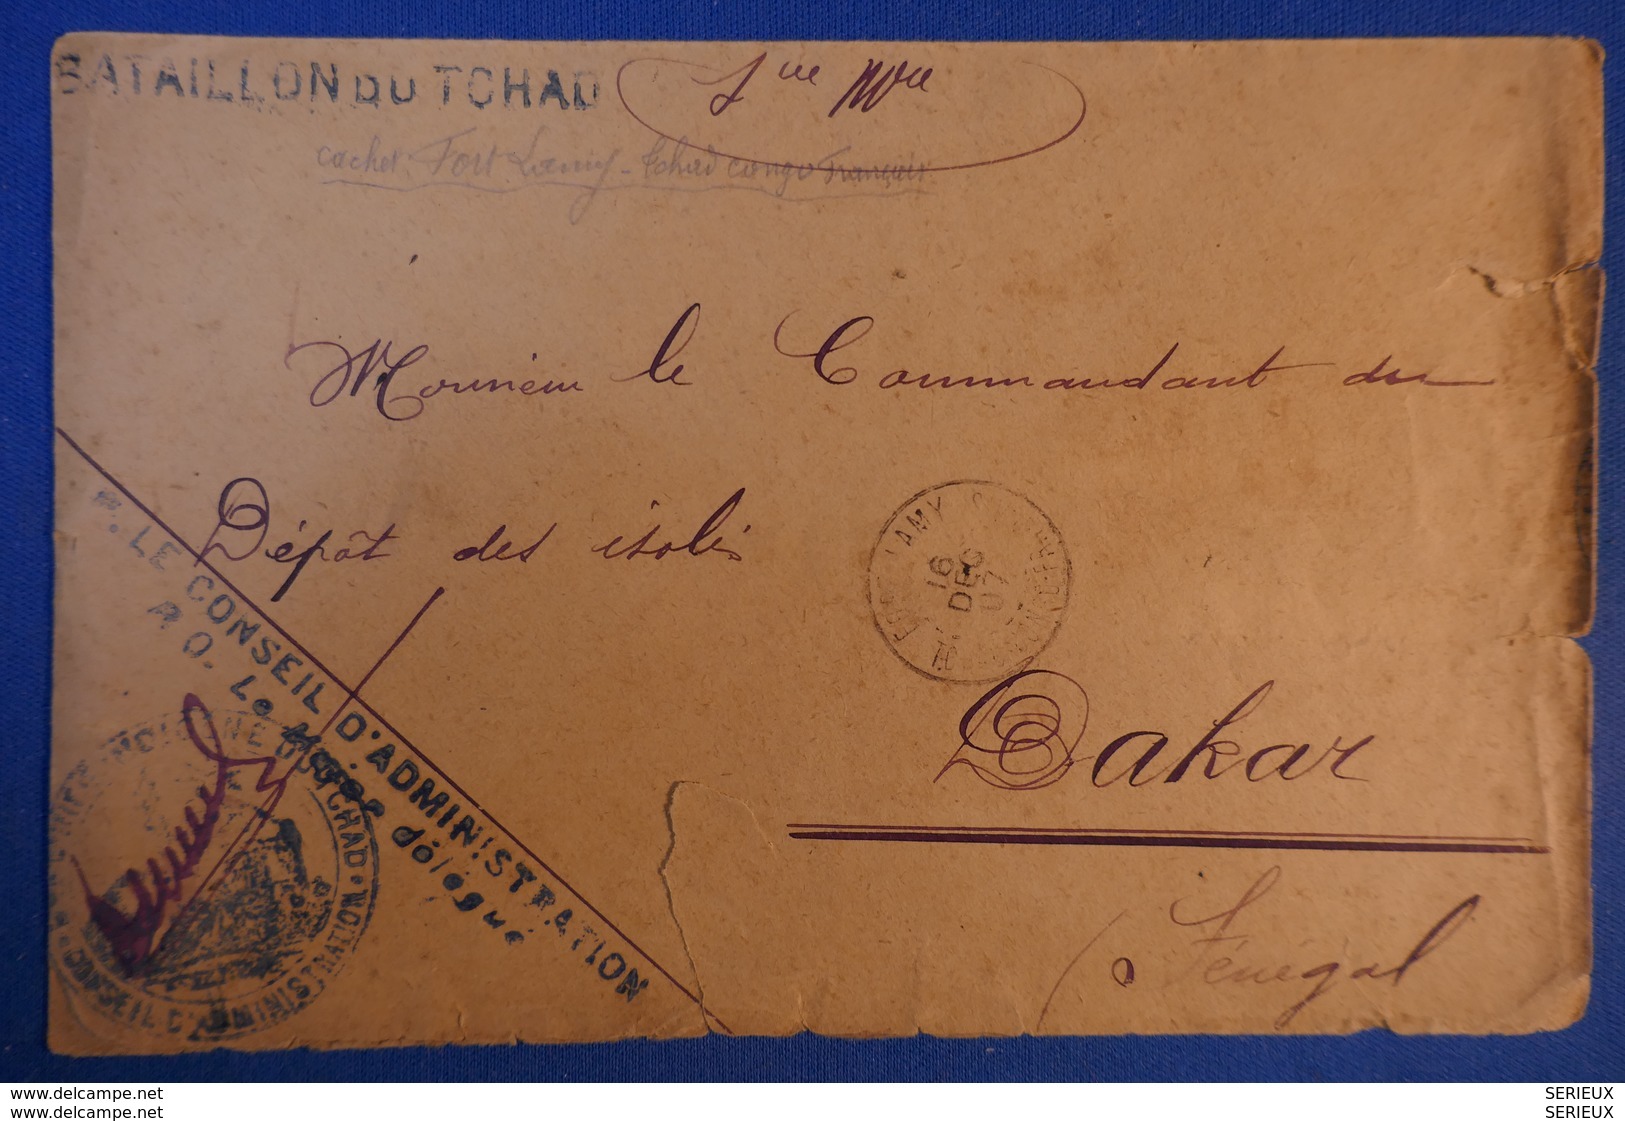 BATAILLON DU TCHAD
cachet Fort Lamy - tchad congo Français
Monsieur le Commandant du
Dépôt des isolés
FORT LAMY
16
DEC
07
Dakar
Sénégal
P. LE CONSEIL D'ADMINISTRATION
P.O. Le Major délégué
TCHAD
CONSEIL D'ADMINISTRATION
SERIEUX
SERIEUX
www.delcampe.net
www.delcampe.net